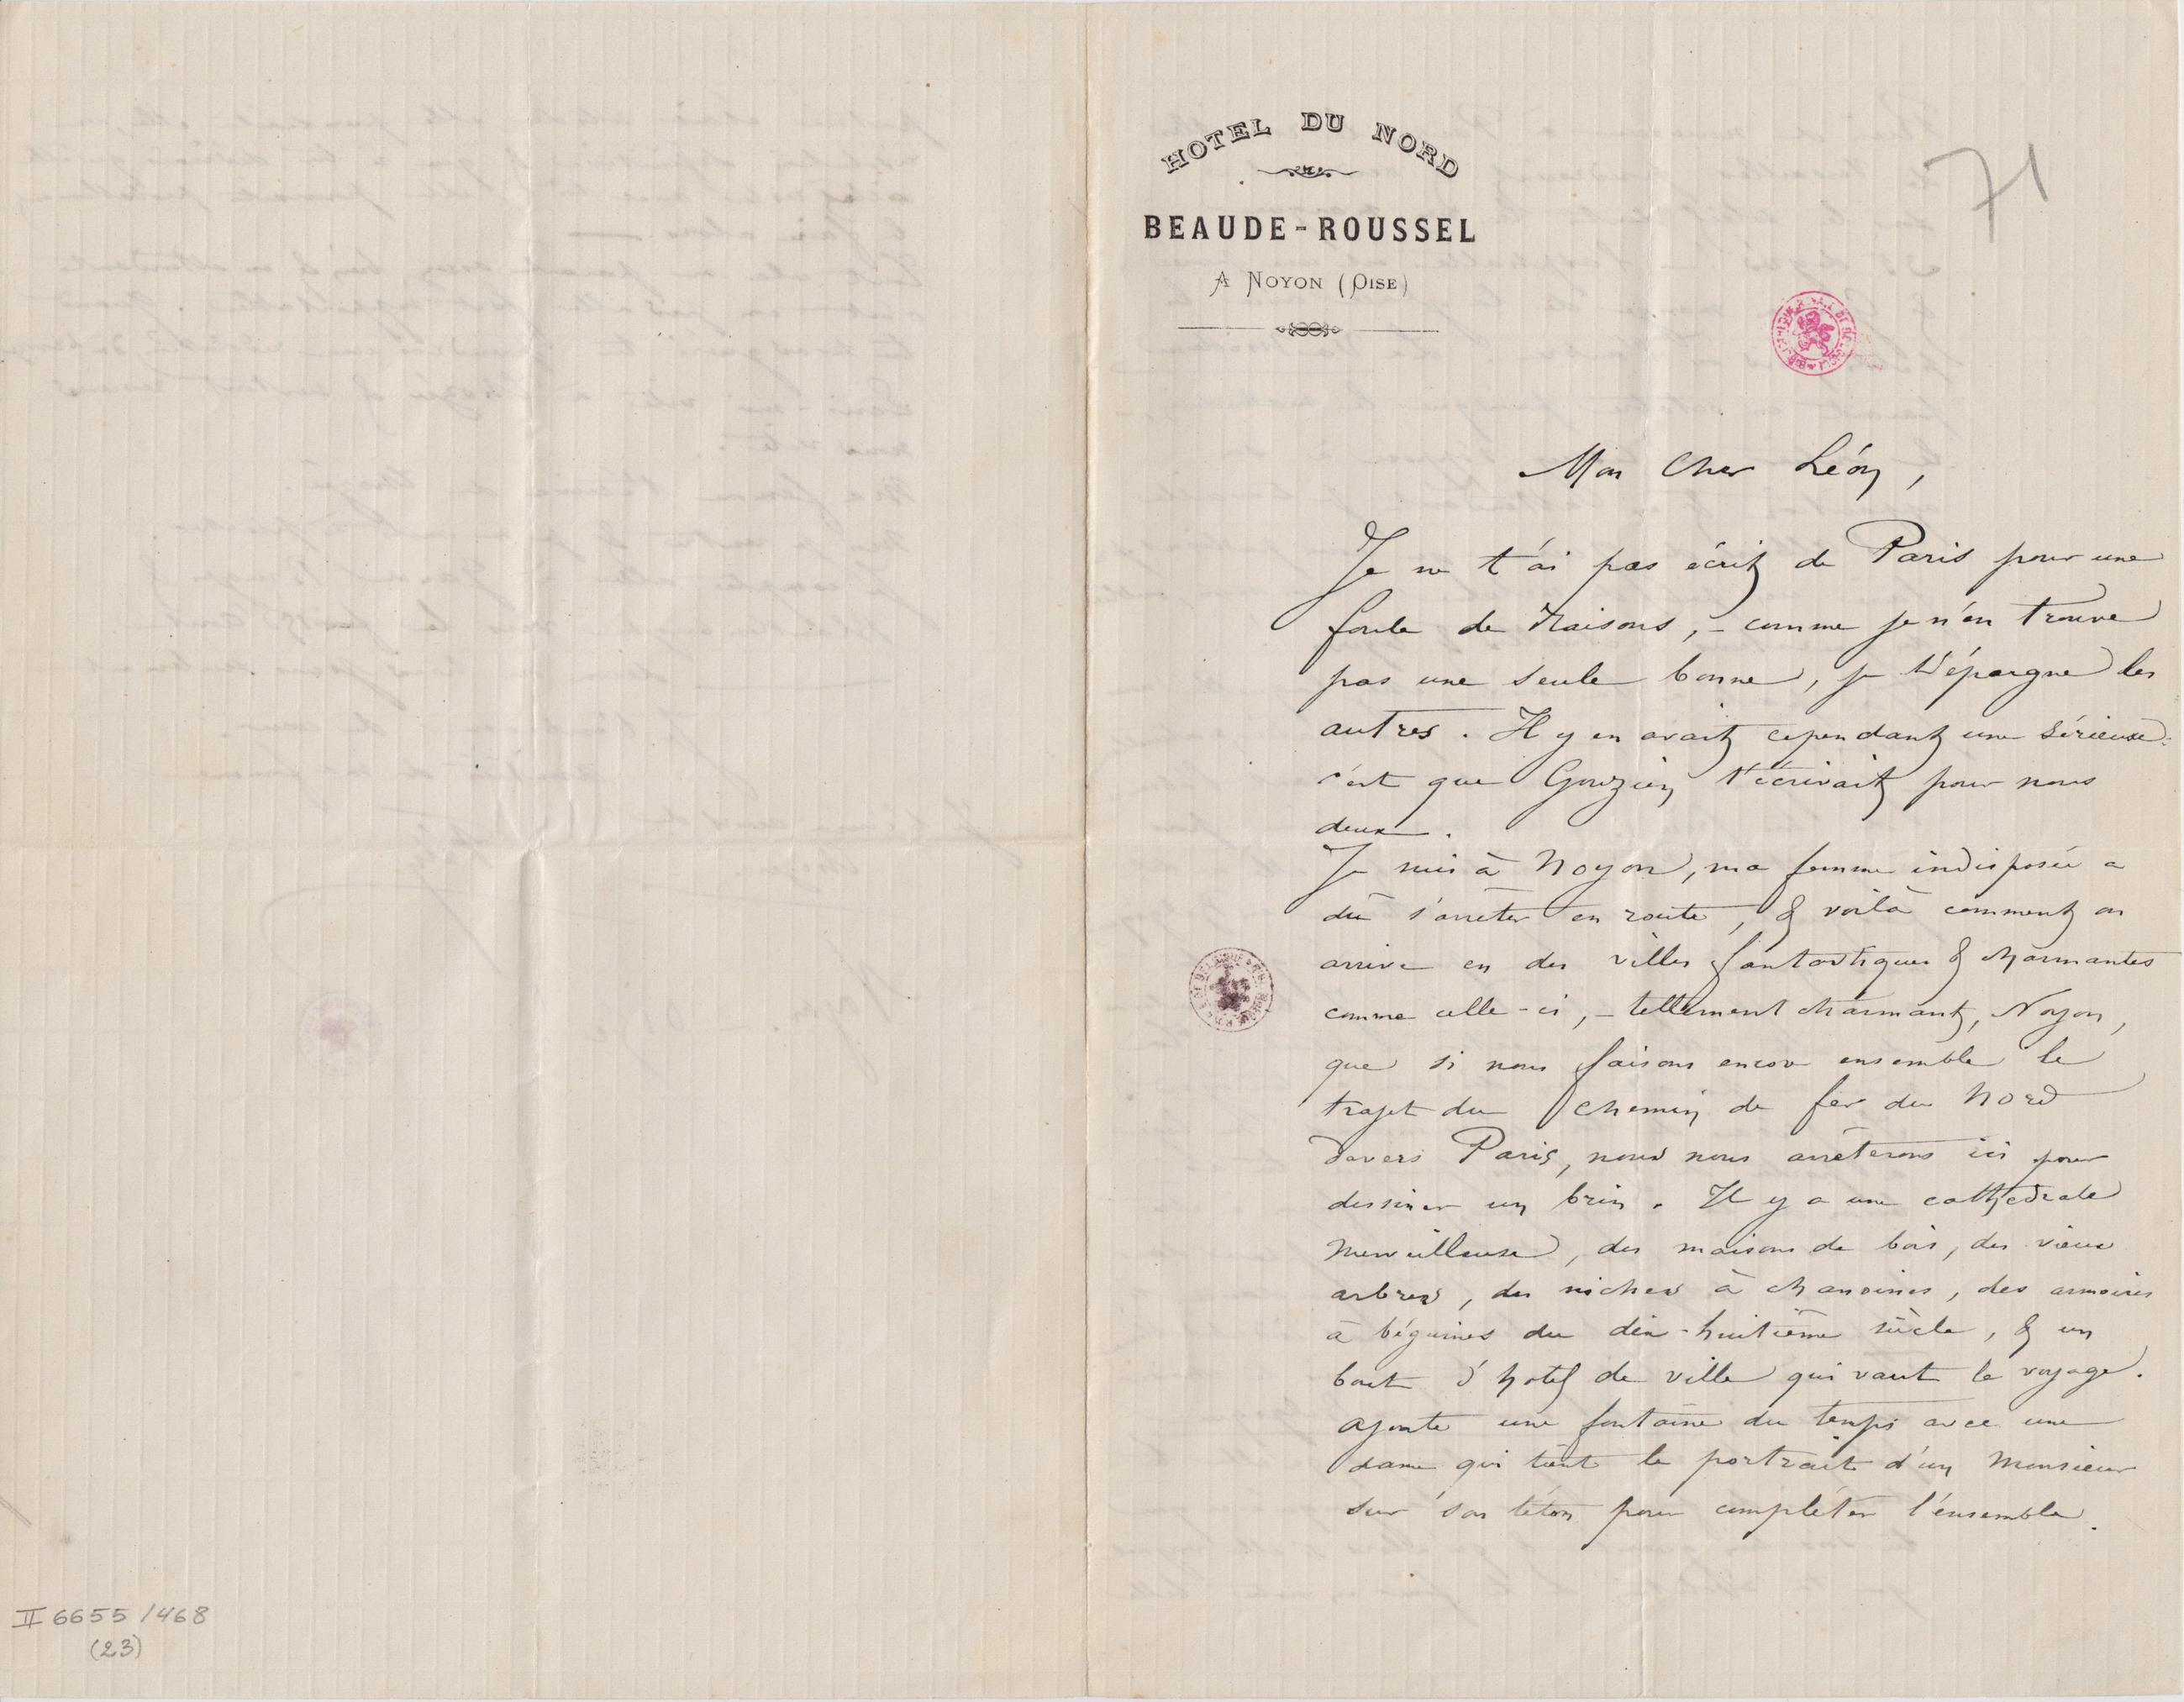 HOTEL DU NORD
BEAUDE-ROUSSEL
A NOYON (OISE)
71
Mon Cher Léon,
Je ne t'ai pas écrit de Paris pour une
foule de raisons, – comme je n'en trouve
pas une seule bonne, je t'épargne les
autres. Il y en avait cependant une sérieuse:
c'est que Gouzien t'écrivait pour nous
deux.
Je suis à Noyon, ma femme indisposée a
dû s'arrêter en route, & voilà comment on
arrive en des villes fantastiques & charmantes
comme celle-ci, – tellement charmant, Noyon,
que si nous faisons encore ensemble le
trajet du chemin de fer du Nord
devers Paris, nous nous arrêterons ici pour
dessiner un brin. Il y a une cathédrale
merveilleuse, des maisons de bois, des vieux
arbres, des niches à chanoines, des armoires
à béguines du dix-huitième siècle, & un
bout d'hotel de ville qui vaut le voyage.
ajoute une fontaine du temps avec une
dame qui tient le portrait d'un Monsieur
sur son téton pour compléter l'ensemble.
II 6655/468
(23)